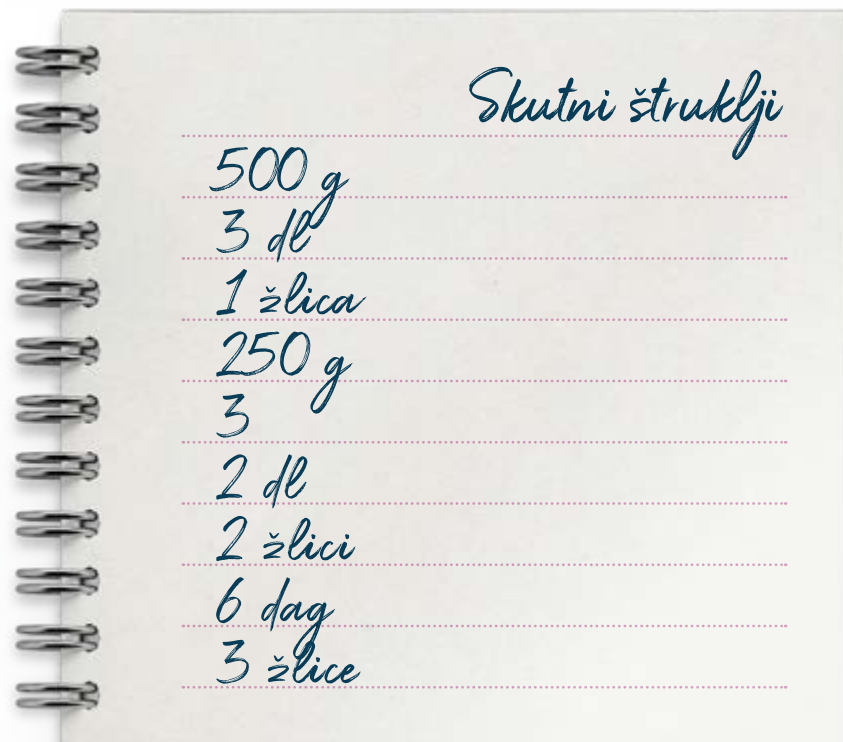 Skutni štruklji
500 g
3 dl
1 žlica
250 g
3
2 dl
2 žlici
6 dag
3 žlice